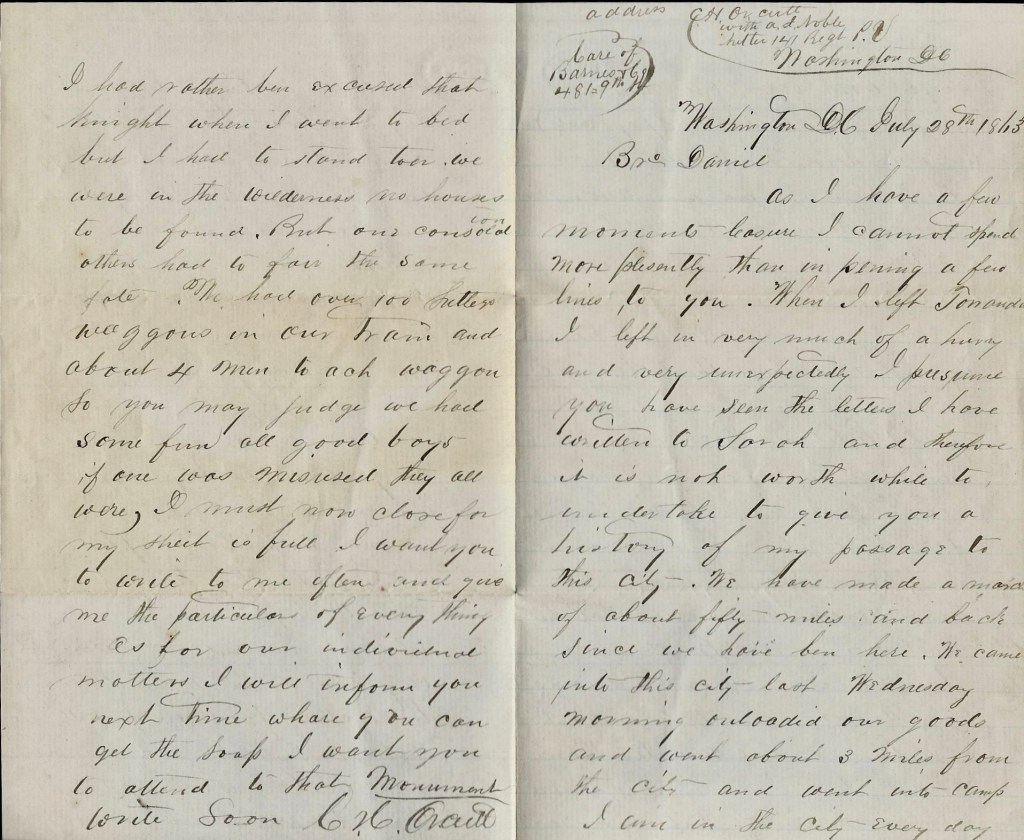 I had rather ben excused that
knight when I went to bed
but I had to stand tow. we
were in the wilderness no houses
to be found. But our consolation
others had to fair the same
fate. We had over 100 Sutters
waggons in our train and
about 4 men to ach waggon
so you may judge we had
some fun all good boys
if one was misused they all
were, I must now close for
my sheit is full I want you
to write to me often and give
me the particulars of every thing
as for our individual
matters I will inform you
next time whare you can
get the soap I want you
to attend to that Monument
write Soon C. H. Orcutt
address
C. H. Orcutt
with A. D. Noble
Sutler 141 Regt P. V
Washington DC
Care of
Barnes &
481-9th
Washington DC July 28th 1863
Bro Daniel
As I have a few
moments leasure I cannot spend
more plesently than in pening a few
lines to you. When I left Towanda
I left in very much of a hurry
and very unexpectedly I presume
you have seen the letters I have
written to Sarah and therefore
it is not worth while to
undertake to give you a
history of my passage to
this city. We have made a march
of about fifty miles and back
since we have ben here. We came
into this city last Wednesday
morning unloadid our goods
and went about 3 miles from
the city and went into camp
I am in the city every day